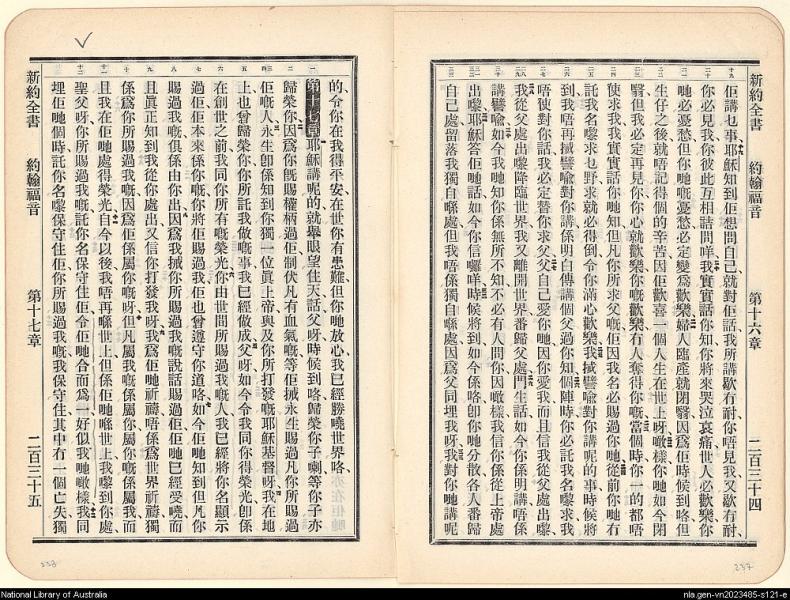 新約全書 約翰福音 第十六章 二百三十四
佢講乜事耶穌知到佢想問自己就對佢話我所講歇有耐你唔見我又歇有耐
你必見我你彼此互相詰問咩我實實話你知你將來哭泣哀痛世人必歡樂你
哋必憂愁但你哋嘅憂愁必定變爲歡樂婦人臨產就閉翳因爲佢時候到咯但
生仔之後就唔記得個的辛苦因佢歡喜一個人生在世上呀噉樣你哋如今閉
翳但我必定再見你你心就歡樂你嘅歡樂冇人奪得你嘅當個時你一的都唔
使求我我實實話你哋知但凡你所求父嘅佢因我名必賜過你哋從前你哋冇
託我名嚟求乜野求就必得倒令你滿心歡樂我搣譬喻對你講呢的事時候將
到我唔再搣譬喻對你講係明白傳講個父過你知個陣時你必託我名嚟求我
唔使對你話我必定替你求父父自己愛你哋因你愛我而且信我從父處出嚟
我從父處出嚟降臨世界我又離開世界番歸父處門生話如今你係明講唔係
講譬喻如今我哋知你係無所不知不必有人問你因噉樣我信你係從上帝處
出嚟耶穌答佢哋話如今你信囉咩時候將到如今係咯卽你哋分散各人番歸
自己處留落我獨自喺處但我唔係獨自喺處因爲父同埋我呀我對你哋講呢
的令你在我得平安在世你有患難但你哋放心我已經勝曉世界咯
第十七章耶穌講呢的就舉眼望住天話父呀時候到咯歸榮你子喇等你子亦
歸榮你因爲你既賜權柄過佢制伏凡有血氣嘅等佢搣永生賜過凡你所賜過
佢嘅人永生卽係知到你獨一位眞上帝與及你所打發嘅耶穌基督呀我在地
上也曾歸榮你你所託我做嘅事我已經做成父呀如今令我同你得榮光卽係
在創世之前我同你所有嘅榮光你由世間所賜過我嘅人我已經將你名顯示
過佢佢本來係你嘅你將佢賜過我佢也曾遵守你道咯如今佢哋知到但凡你
賜過我嘅俱係由你出因爲我搣你所賜過我嘅說話賜過佢佢哋已經受曉而
且眞正知到我從你處出又信你打發我呀我爲佢哋祈禱唔係爲世界祈禱獨
係爲你所賜過我嘅因爲佢係屬你嘅呀但凡屬我嘅係屬你屬你嘅係屬我而
且我在佢哋處得榮光自今以後我唔再喺世上但係佢哋喺世上我嚟到你處
聖父呀你所賜過我嘅託你名保守住佢令佢哋合而爲一好似我哋噉樣我同
埋佢哋個時託你名嚟保守住佢你所賜過我嘅我保守住其中冇一個亡失獨
新約全書 約翰福音 第十七章 二百三十五
238
237
National Library of Australia
nla.gen-vn2023485-s121-e